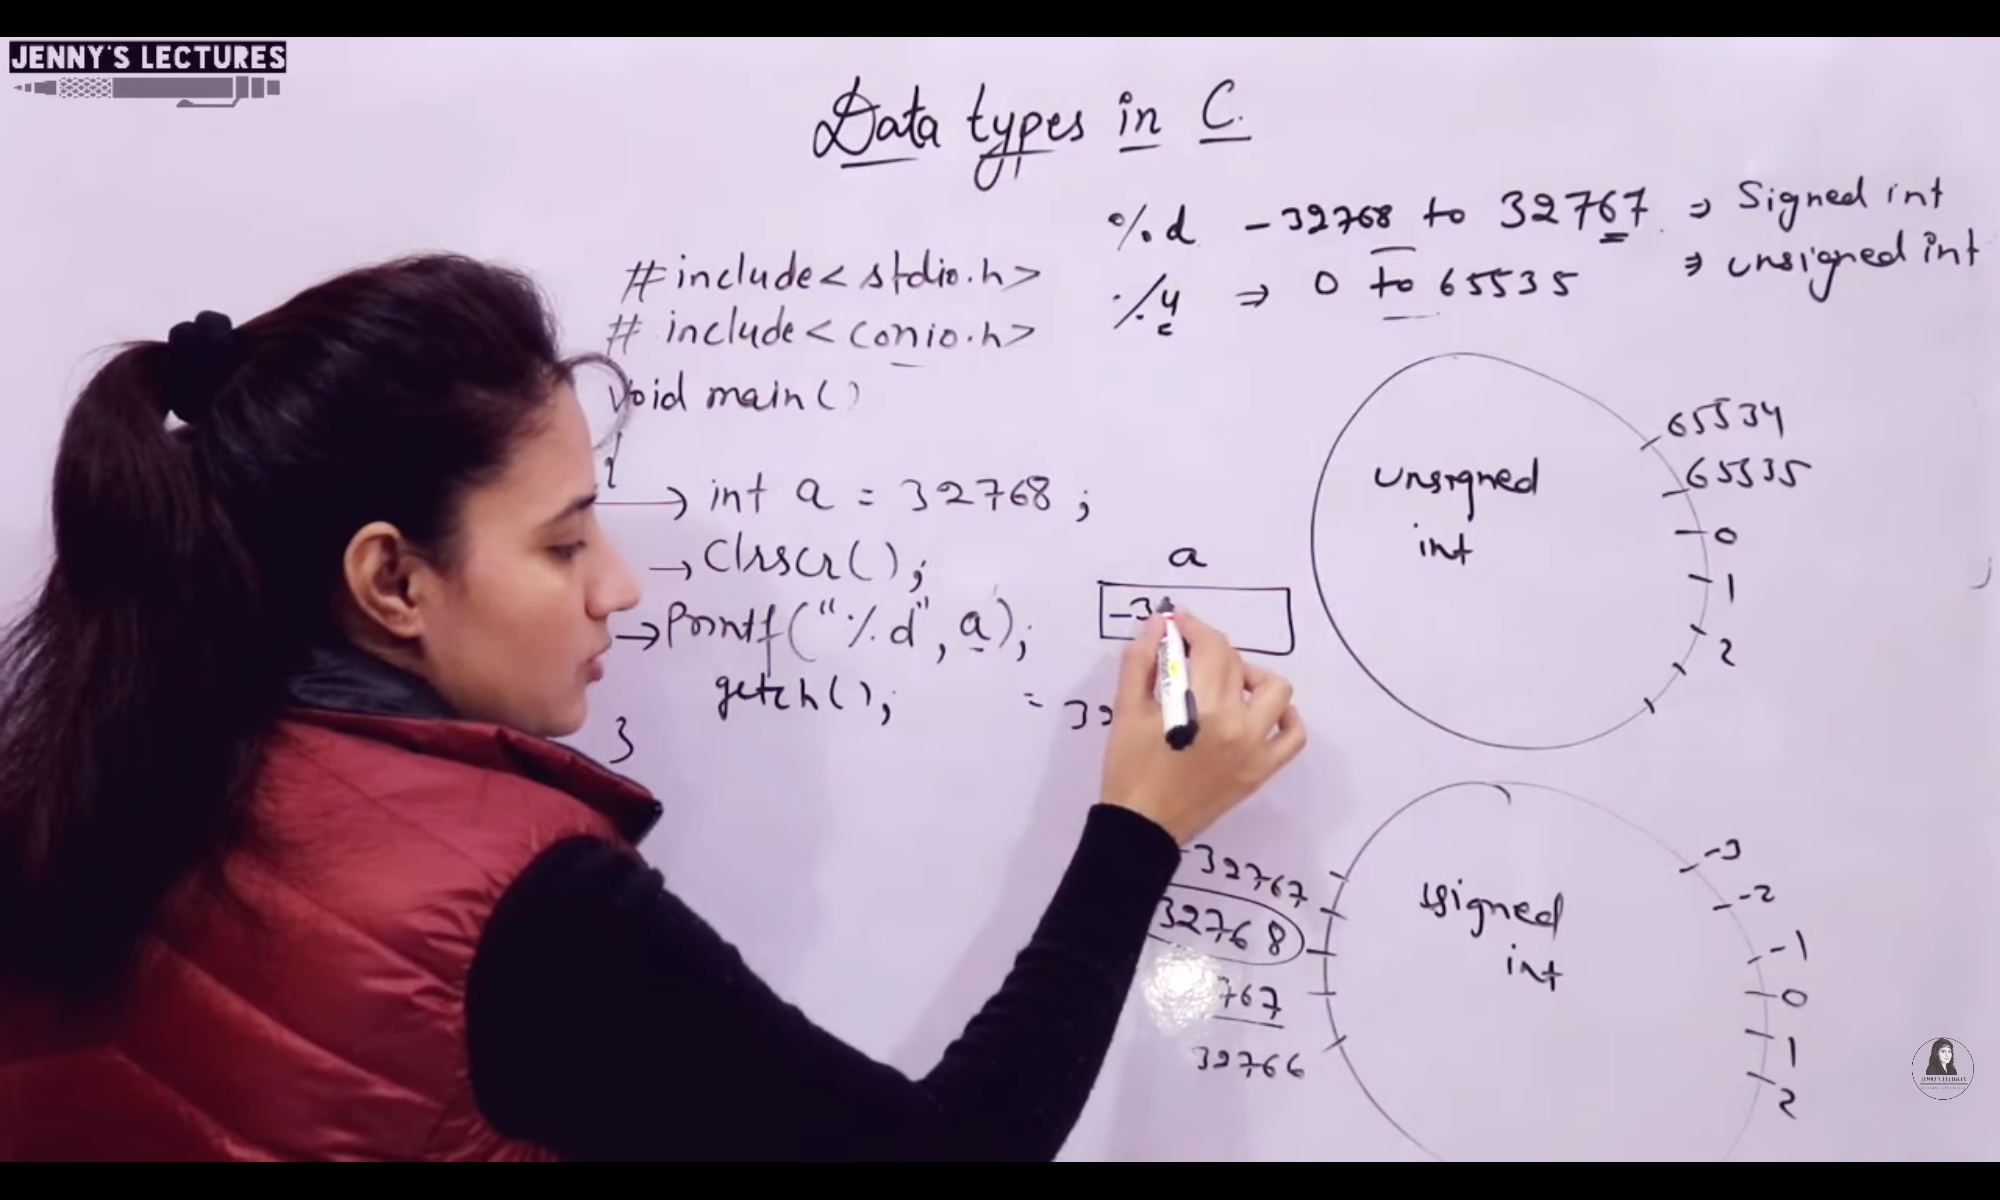 JENNY'S LECTURES
Data types in C.
%d -32768 to 32767 ⇒ Signed int
%u ⇒ 0 to 65535 ⇒ unsigned int
#include<stdio.h>
# include<conio.h>
void main()
{
→ int a = 32768;
→ clrscr();
→ printf("%d", a);
getch();
}
a
-3
= 32
unsigned
int
65534
65535
0
1
2
signed
int
-3
-2
-1
0
1
2
-32767
32768
767
32766
JENNY'S LECTURES